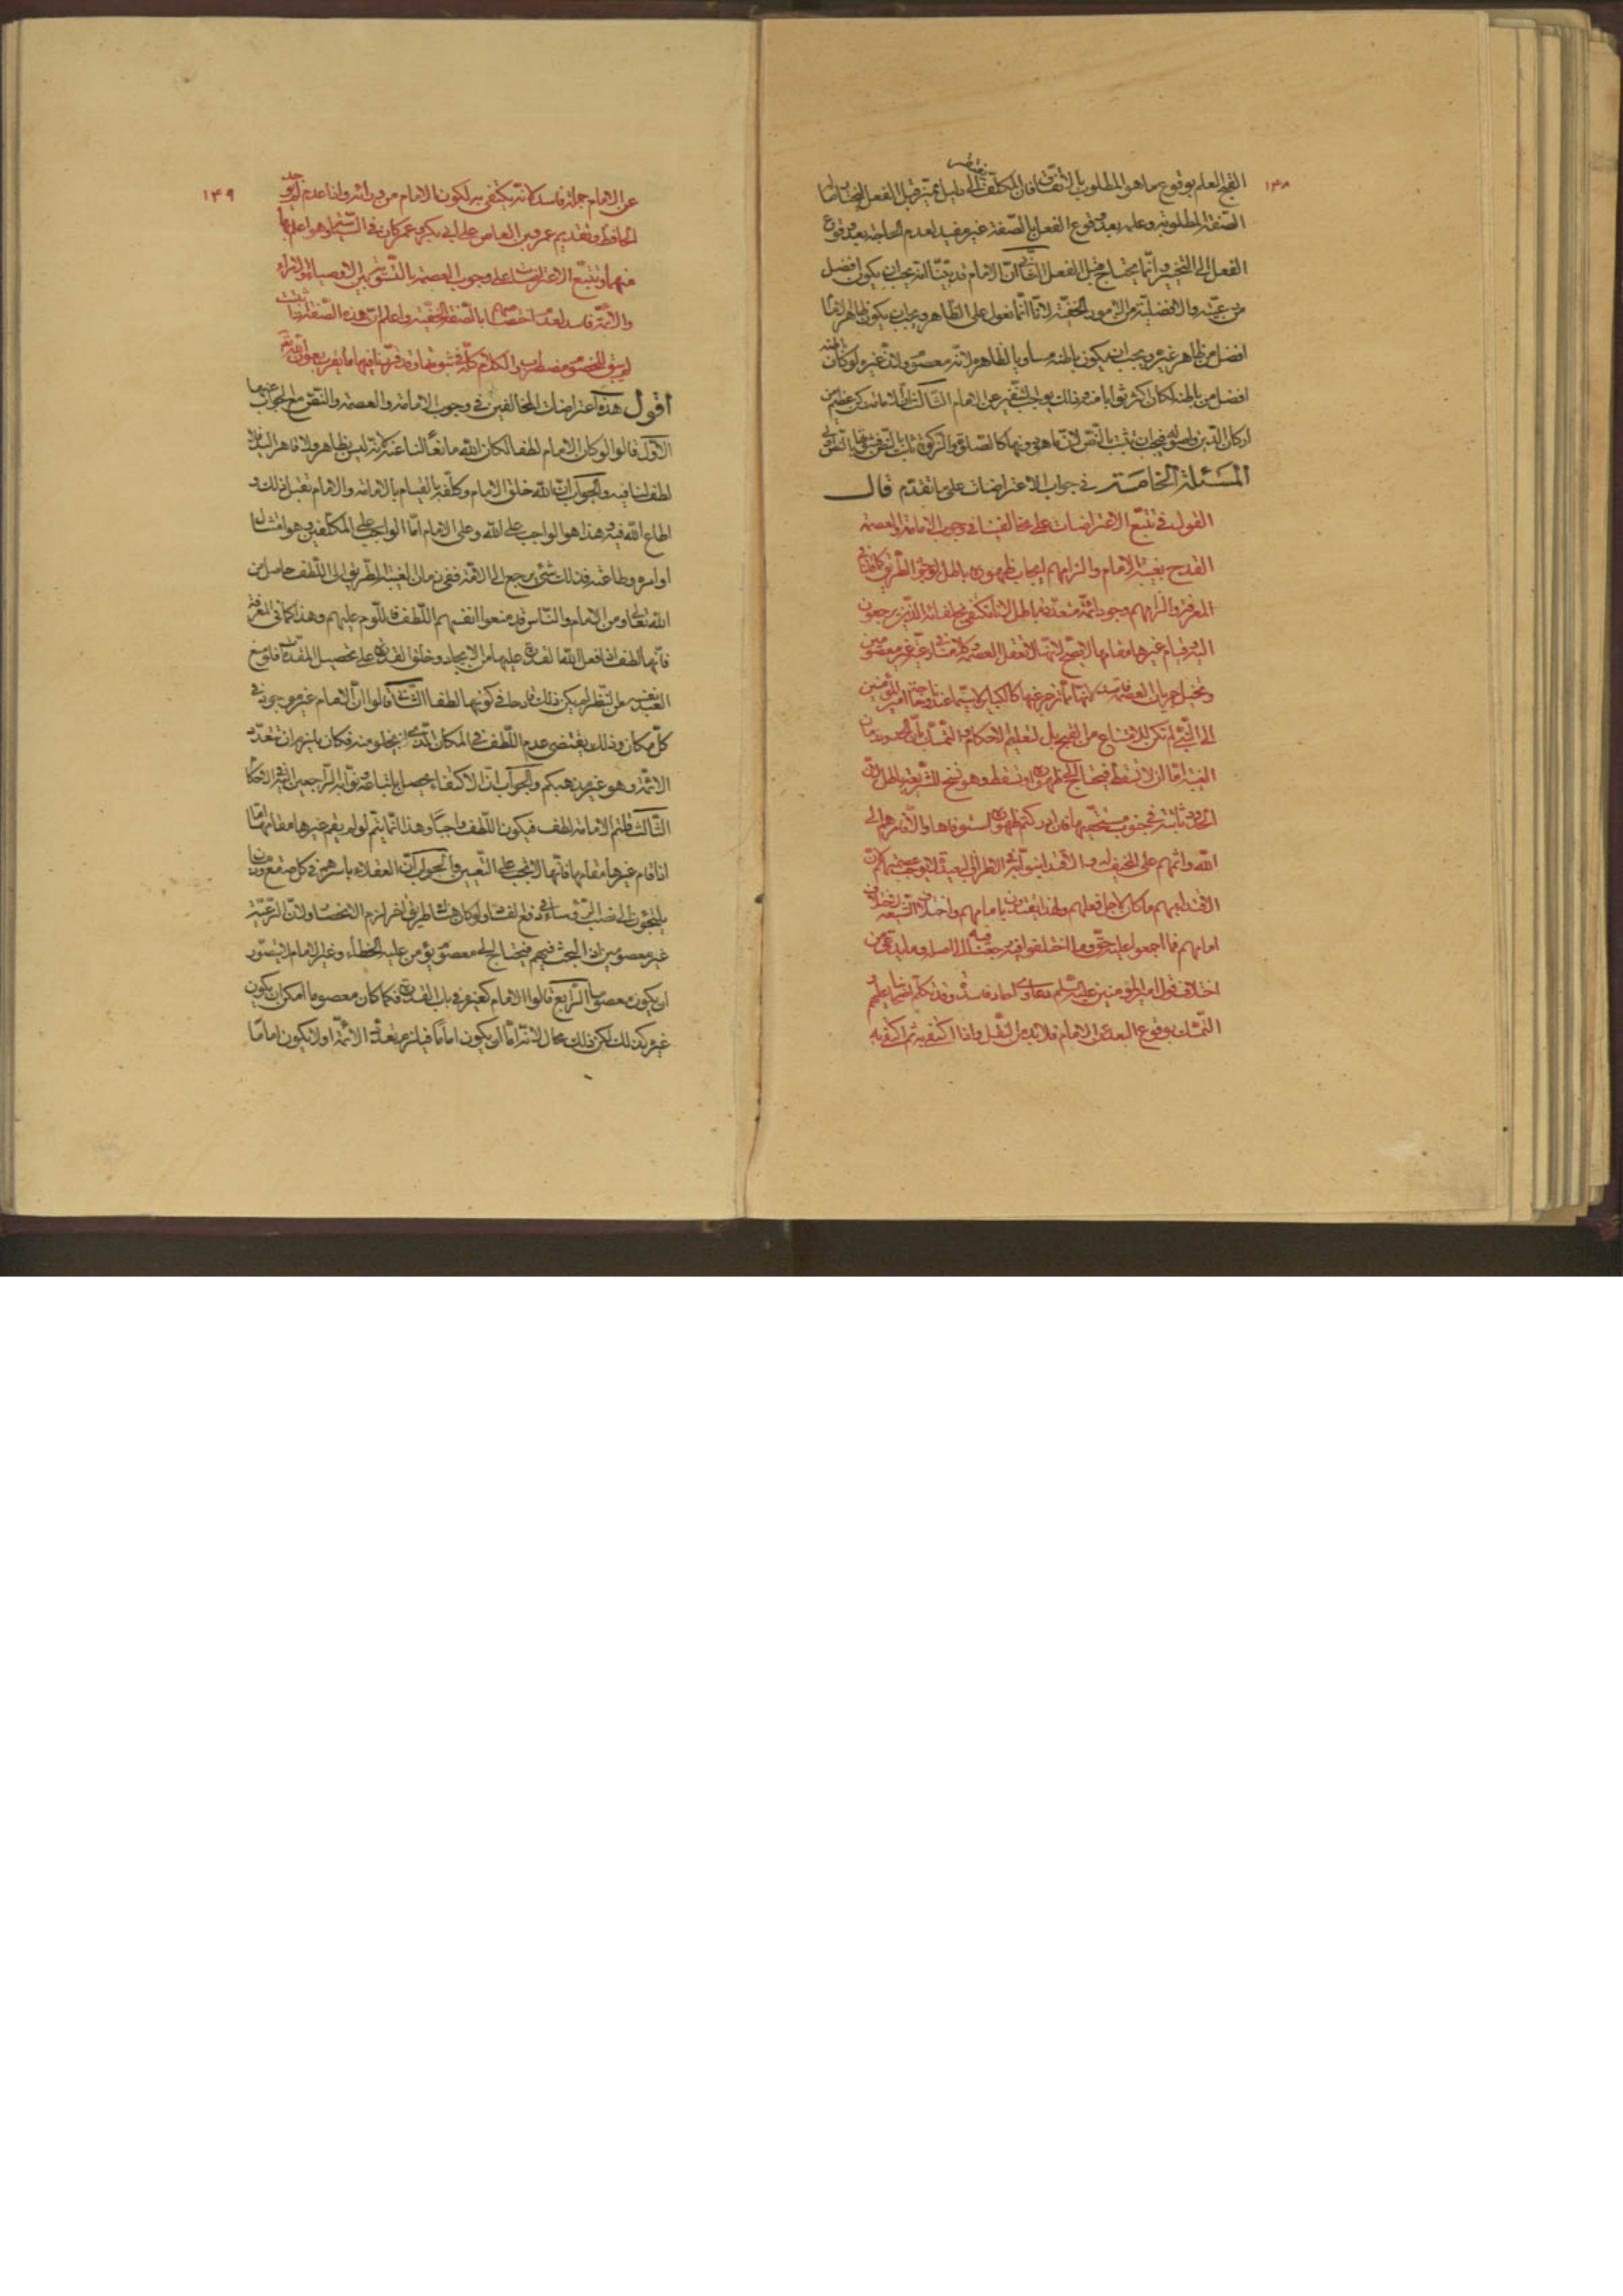 ١٣٨
القبح العلم بوقوع ما هو المطلوب بالاتفاق فان المكلف الى دليل يميز قبل الفعل
الصفة المطلوبة وعلمه بعد وقوع الفعل بالصفة غير مفيد لعدم الحاجة بعد وقوع
الفعل الى التخيير وانما يحتاج قبل الفعل الثانى ان الامام قد بيّنا انه يجب ان يكون افضل
من رعيته والافضلية من الامور الخفية لانا انما نعول على الظاهر ويجب ان يكون ظاهر
افضل من ظاهر غيره ويجب ان يكون باطنه مساويا لظاهره لانه معصوم ولان غيره لو كان باطنه
افضل من باطنه لكان اكثر ثوابا منه وذلك يوجب التنفير عن الامام الثالث ان الامامة ركن عظيم من
اركان الدين واصوله فيجب ان يثبت بالنص لان ما هو دونها كالصلوة والزكوة ثابت بالنص
المسئلة الخامسة فى جواب الاعتراضات على ما تقدم قال
القول فى تتبع الاعتراضات على مخالفينا فى وجوب الامامة والعصمة
القدح بغيبة الامام والزامهم ايجاب ظهوره باطل لوجود الطريق كما فى
المعرفة والزامهم وجود ائمة متعددة باطل لانا نكتفى بخلفائه الذين يرجعون
اليه وقيام غيرها مقامها لا يصح لانها لا تعقل العصمة فى رعية غير معصومين
الى النبى لم تكن للامتناع من القبيح بل لتعليم الاحكام والتمسك بان الحدود زمان
الغيبة اما ان لا تسقط فيحتاج الى ظهوره او تسقط وهو نسخ الشريعة باطل لان
الحدود ثابتة فى جنوب مستحقيها فان ادركتهم ظهوره استوفاها والا فامرهم الى
الله واثمهم على المخيف له والاقتداء بنوابه فى الاطراف البعيدة لا يوجب عصمتهم لان
الاقتداء بهم ما كان لاجل فعلهم ولهذا يقتدون بامامهم واختلاف الشيعة
امامهم فما اجمعوا عليه حق وما اختلفوا فيه رجعنا فيه الى الاصل وما يدعى من
اختلاف قول امير المؤمنين عليه السلم دعاوى آحاد فاسدة وقد تكلم اصحابنا عليهم
التمسك بوقوع البعد عن الامام فلا بد من النقل واذا اكتفى به ثم اكتفى به
١٤٩
عن الامام جملة فاسد لانه يكتفى به لكون الامام من ورائه واذا عدم لم يوجد
الحافظ وتقديم عمرو بن العاص على ابى بكر وعمر كان فى السياسة وهو اعلم بها
منهما وتتبع الاعتراضات على وجوب العصمة بالتسوية بين الاوصياء والامراء
والائمة فاسد لعدم اختصاصها بالصفة الخفية واعلم ان هذه الصفة اذا ثبتت
لم يبق للخصوم مضطرب والكلام كله فى ثبوتها وقد قررنا فيها ما يغرب بعون الله تعالى
اقول هذه اعتراضات المخالفين فى وجوب الامامة والعصمة والنقض مع الجواب عنها
الاول قالوا لو كان الامام لطفا لكان الله مانعا لنا عنه لانه ليس بظاهر ولا قاهر اليد فلا
لطف لنا فيه والجواب ان الله خلق الامام وكلفه بالقيام بالامامة والامام تقبل ذلك و
اطاع الله فيه وهذا هو الواجب على الله وعلى الامام اما الواجب على المكلفين وهو امتثال
اوامره وطاعته فذلك شئ يرجع الى الامة ففى زمان الغيبة الطريق الى اللطف حاصل من
الله تعالى ومن الامام والناس قد منعوا انفسهم اللطف فاللوم عليهم وهذا كما فى المعرفة
فانها لطف اذا فعل الله القدرة عليها من الايجاد وخلق القدرة على تحصيل المقدمات فلو منع
العبد نفسه من النظر لم يكن ذلك قادحا فى كونها لطفا الثانى قالوا ان الامام غير موجود فى
كل مكان وذلك يقتضى عدم اللطف فى المكان الذى يخلو منه فكان يلزم ان تتعدد
الائمة وهو غير مذهبكم والجواب ان الاكتفاء يحصل باتباعه ونوابه الراجعين اليه فى الاحكام
الثالث قلتم الامامة لطف فيكون اللطف واجبا وهذا انما يتم لو لم يقم غيرها مقامها اما
اذا قام غيرها مقامها فانها لا تجب على التعيين والجواب ان العقلاء باسرهم فى كل صقع وزمان
يلتجئون الى نصب الرؤساء فى دفع المفاسد ولو كان هناك طريق آخر لزم الانحصار ولان الرعية
غير معصومين اذ البحث فيهم فيحتاج الى معصوم يؤمن عليه الخطاء وغير الامام لا يتصور
ان يكون معصوما الرابع قالوا الامام كغيره فى باب القدرة فكما كان معصوما امكن ان يكون
غيره كذلك لكن ذلك محال لانه اما ان يكون اماما فيلزم تعدد الائمة او لا يكون اماما